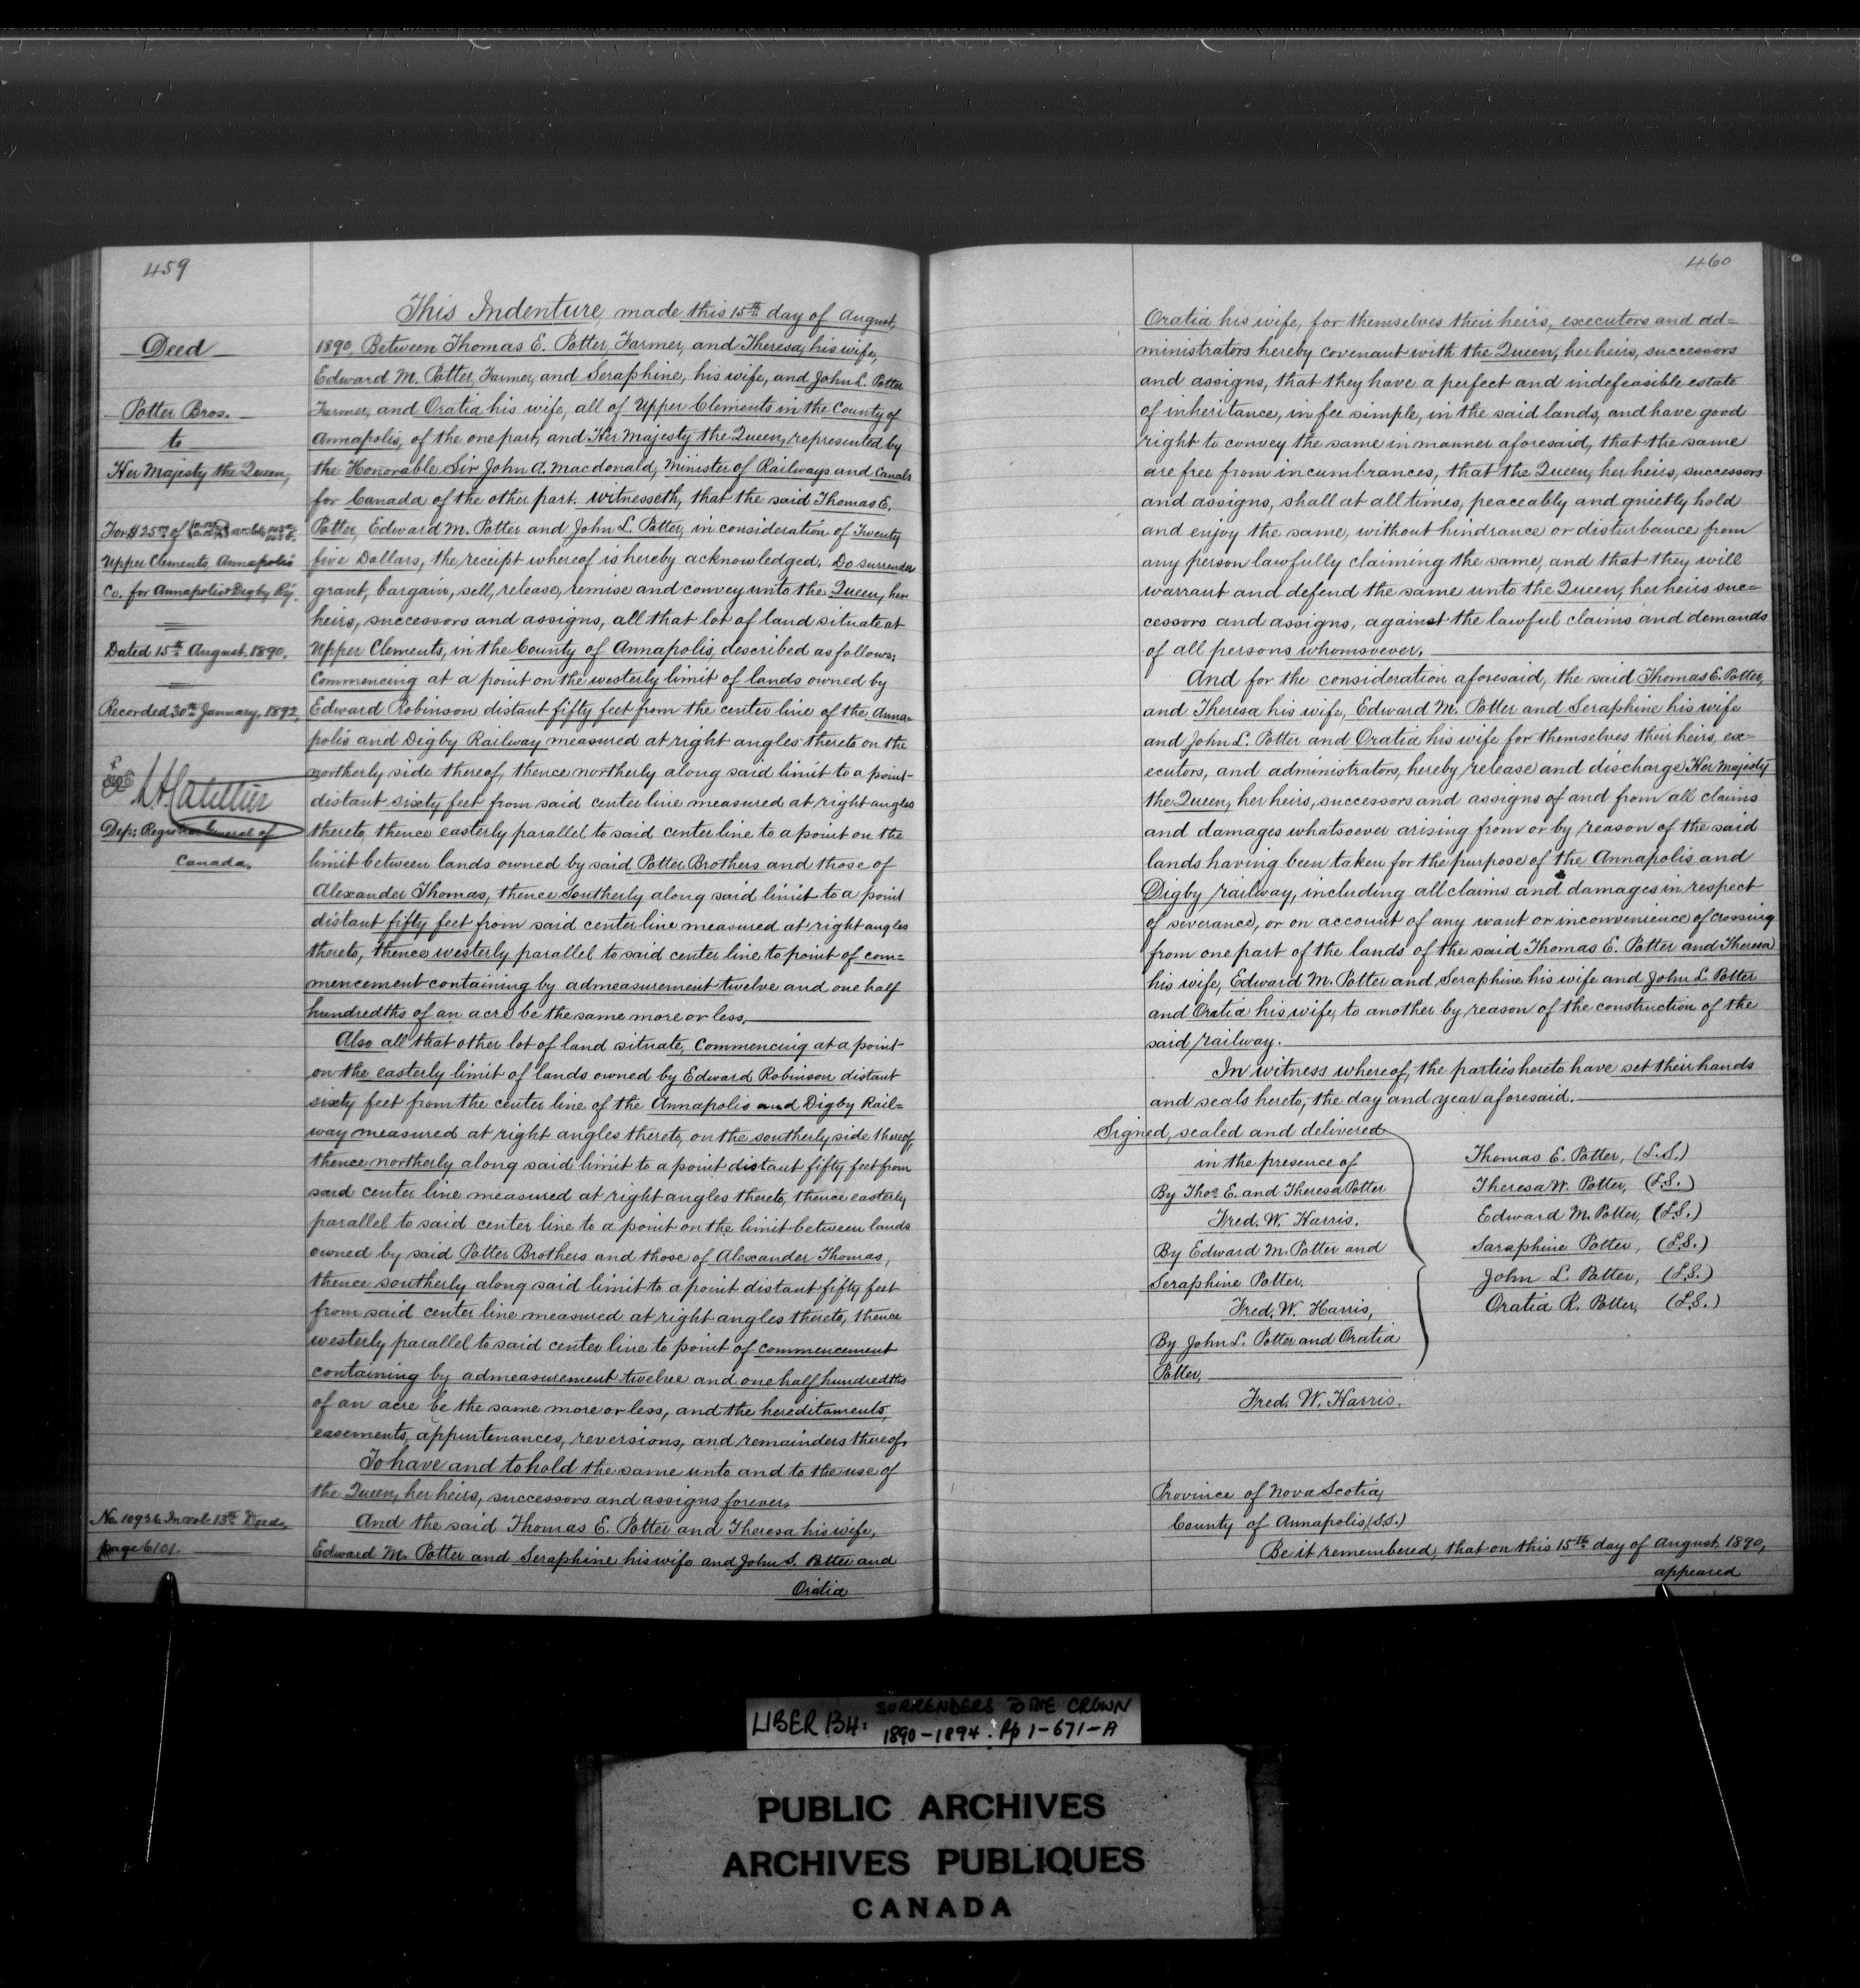 459
Deed
Potter Bros.
to
Her Majesty the Queen,
For $25.00 of
Upper Clements Annapolis
Co. for Annapolis & Digby Ry.
Dated 15th August, 1890.
Recorded 30th January, 1892,
Dep: Registrar General of
Canada.
No. 10926 In vol. 13th Deeds,
page 6101.
This Indenture, made this 15th day of August,
1890, Between Thomas E. Potter, Farmer, and Theresa, his wife,
Edward M. Potter, Farmer, and Seraphine, his wife, and John L. Potter
Farmer, and Oratia his wife, all of Upper Clements in the County of
Annapolis, of the one part, and Her Majesty the Queen, represented by
the Honorable Sir John A. Macdonald, Minister of Railways and Canals
for Canada of the other part. Witnesseth, that the said Thomas E.
Potter, Edward M. Potter and John L. Potter, in consideration of Twenty
five Dollars, the receipt whereof is hereby acknowledged, Do surrender
grant, bargain, sell, release, remise and convey unto the Queen, her
heirs, successors and assigns, all that lot of land situate at
Upper Clements, in the County of Annapolis, described as follows;
Commencing at a point on the westerly limit of lands owned by
Edward Robinson distant fifty feet from the center line of the Anna=
polis and Digby Railway measured at right angles thereto on the
northerly side thereof, thence northerly along said limit to a point
distant sixty feet from said center line measured at right angles
thereto, thence easterly parallel to said center line to a point on the
limit between lands owned by said Potter Brothers and those of
Alexander Thomas, thence Southerly along said limit to a point
distant fifty feet from said center line measured at right angles
thereto, thence westerly parallel to said center line to point of com=
mencement containing by admeasurement twelve and one half
hundredths of an acre be the same more or less.
Also all that other lot of land situate, Commencing at a point
on the easterly limit of lands owned by Edward Robinson distant
sixty feet from the center line of the Annapolis and Digby Rail=
way measured at right angles thereto, on the southerly side thereof,
thence northerly along said limit to a point distant fifty feet from
said center line measured at right angles thereto, thence easterly
parallel to said center line to a point on the limit between lands
owned by said Potter Brothers and those of Alexander Thomas,
thence southerly along said limit to a point distant fifty feet
from said center line measured at right angles thereto, thence
westerly parallel to said center line to point of commencement
containing by admeasurement twelve and one half hundredths
of an acre be the same more or less, and the hereditaments,
easements, appurtenances, reversions, and remainders thereof.
To have and to hold the same unto and to the use of
the Queen, her heirs, successors and assigns forever.
And the said Thomas E. Potter and Theresa his wife,
Edward M. Potter and Seraphine his wife and John S. Potter and
Oratia
460
Oratia his wife, for themselves their heirs, executors and ad=
ministrators hereby covenant with the Queen, her heirs, successors
and assigns, that they have a perfect and indefeasible estate
of inheritance, in fee simple, in the said lands, and have good
right to convey the same in manner aforesaid, that the same
are free from incumbrances, that the Queen, her heirs, successors
and assigns, shall at all times, peaceably and quietly hold
and enjoy the same, without hindrance or disturbance from
any person lawfully claiming the same, and that they will
warrant and defend the same unto the Queen, her heirs suc=
cessors and assigns, against the lawful claims and demands
of all persons whomsoever.
And for the consideration aforesaid, the said Thomas E. Potter,
and Theresa his wife, Edward M. Potter and Seraphine his wife
and John L. Potter and Oratia his wife for themselves their heirs, ex=
ecutors, and administrators, hereby release and discharge Her Majesty
the Queen, her heirs, successors and assigns of and from all claims
and damages whatsoever arising from or by reason of the said
lands having been taken for the purpose of the Annapolis and
Digby railway, including all claims and damages in respect
of severance, or on account of any want or inconvenience of crossing
from one part of the lands of the said Thomas E. Potter and Theresa
his wife, Edward M. Potter and Seraphine his wife and John L. Potter
and Oratia his wife, to another by reason of the construction of the
said railway.
In witness whereof, the parties hereto have set their hands
and seals hereto, the day and year aforesaid.
Signed, sealed and delivered
in the presence of
By Thos. E. and Theresa Potter
Fred. W. Harris.
By Edward M. Potter and
Seraphine Potter.
Fred. W. Harris,
By John L. Potter and Oratia
Potter,
Fred. W. Harris.
Thomas E. Potter, (L.S.)
Theresa W. Potter, (L.S.)
Edward M. Potter, (L.S.)
Saraphine Potter, (L.S.)
John L. Potter, (L.S.)
Oratia R. Potter, (L.S.)
Province of Nova Scotia,
County of Annapolis, (S.S.)
Be it remembered, that on this 15th day of August, 1890,
appeared
LIBER 134: SURRENDERS TO THE CROWN
1890-1894. Pp 1-671-A
PUBLIC ARCHIVES
ARCHIVES PUBLIQUES
CANADA